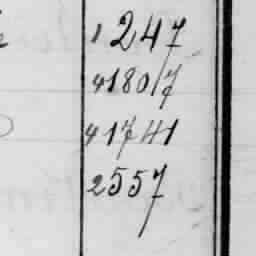 1247
41807
41741
2557